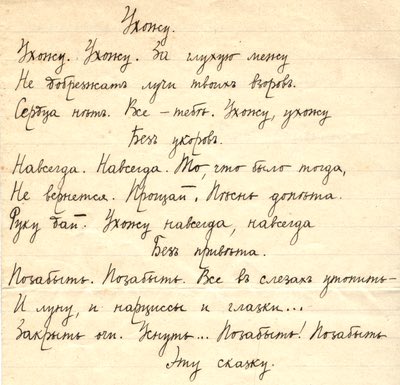 Ухожу.
Ухожу. Ухожу. За глухую межу
Не добрежжатъ лучи твоихъ взоровъ.
Сердца нѣтъ. Все – тебѣ. Ухожу, ухожу
Безъ укоровъ.
Навсегда. Навсегда. То, что было тогда,
Не вернется. Прощай. Пѣснь допѣта.
Руку дай. Ухожу навсегда, навсегда
Безъ привѣта.
Позабыть. Позабыть. Все въ слезахъ утопить –
И луну, и нарциссы и глазки...
Закрыть очи. Уснуть... Позабыть! Позабыть
Эту сказку.